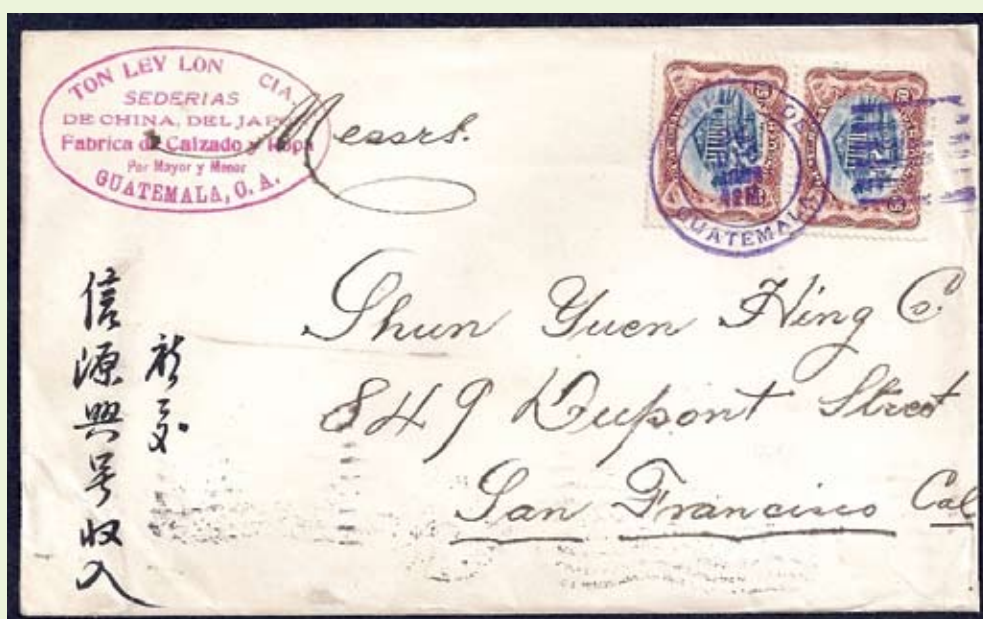 TON LEY LON CIA.
SEDERIAS
DE CHINA, DEL JAPON
Fabrica de Calzado y Ropa
Por Mayor y Menor
GUATEMALA, C. A.
Messrs.
GUATEMALA
Shun Yuen Hing C.
849 Dupont Street
San Francisco Cal
祈交
信源興号收入